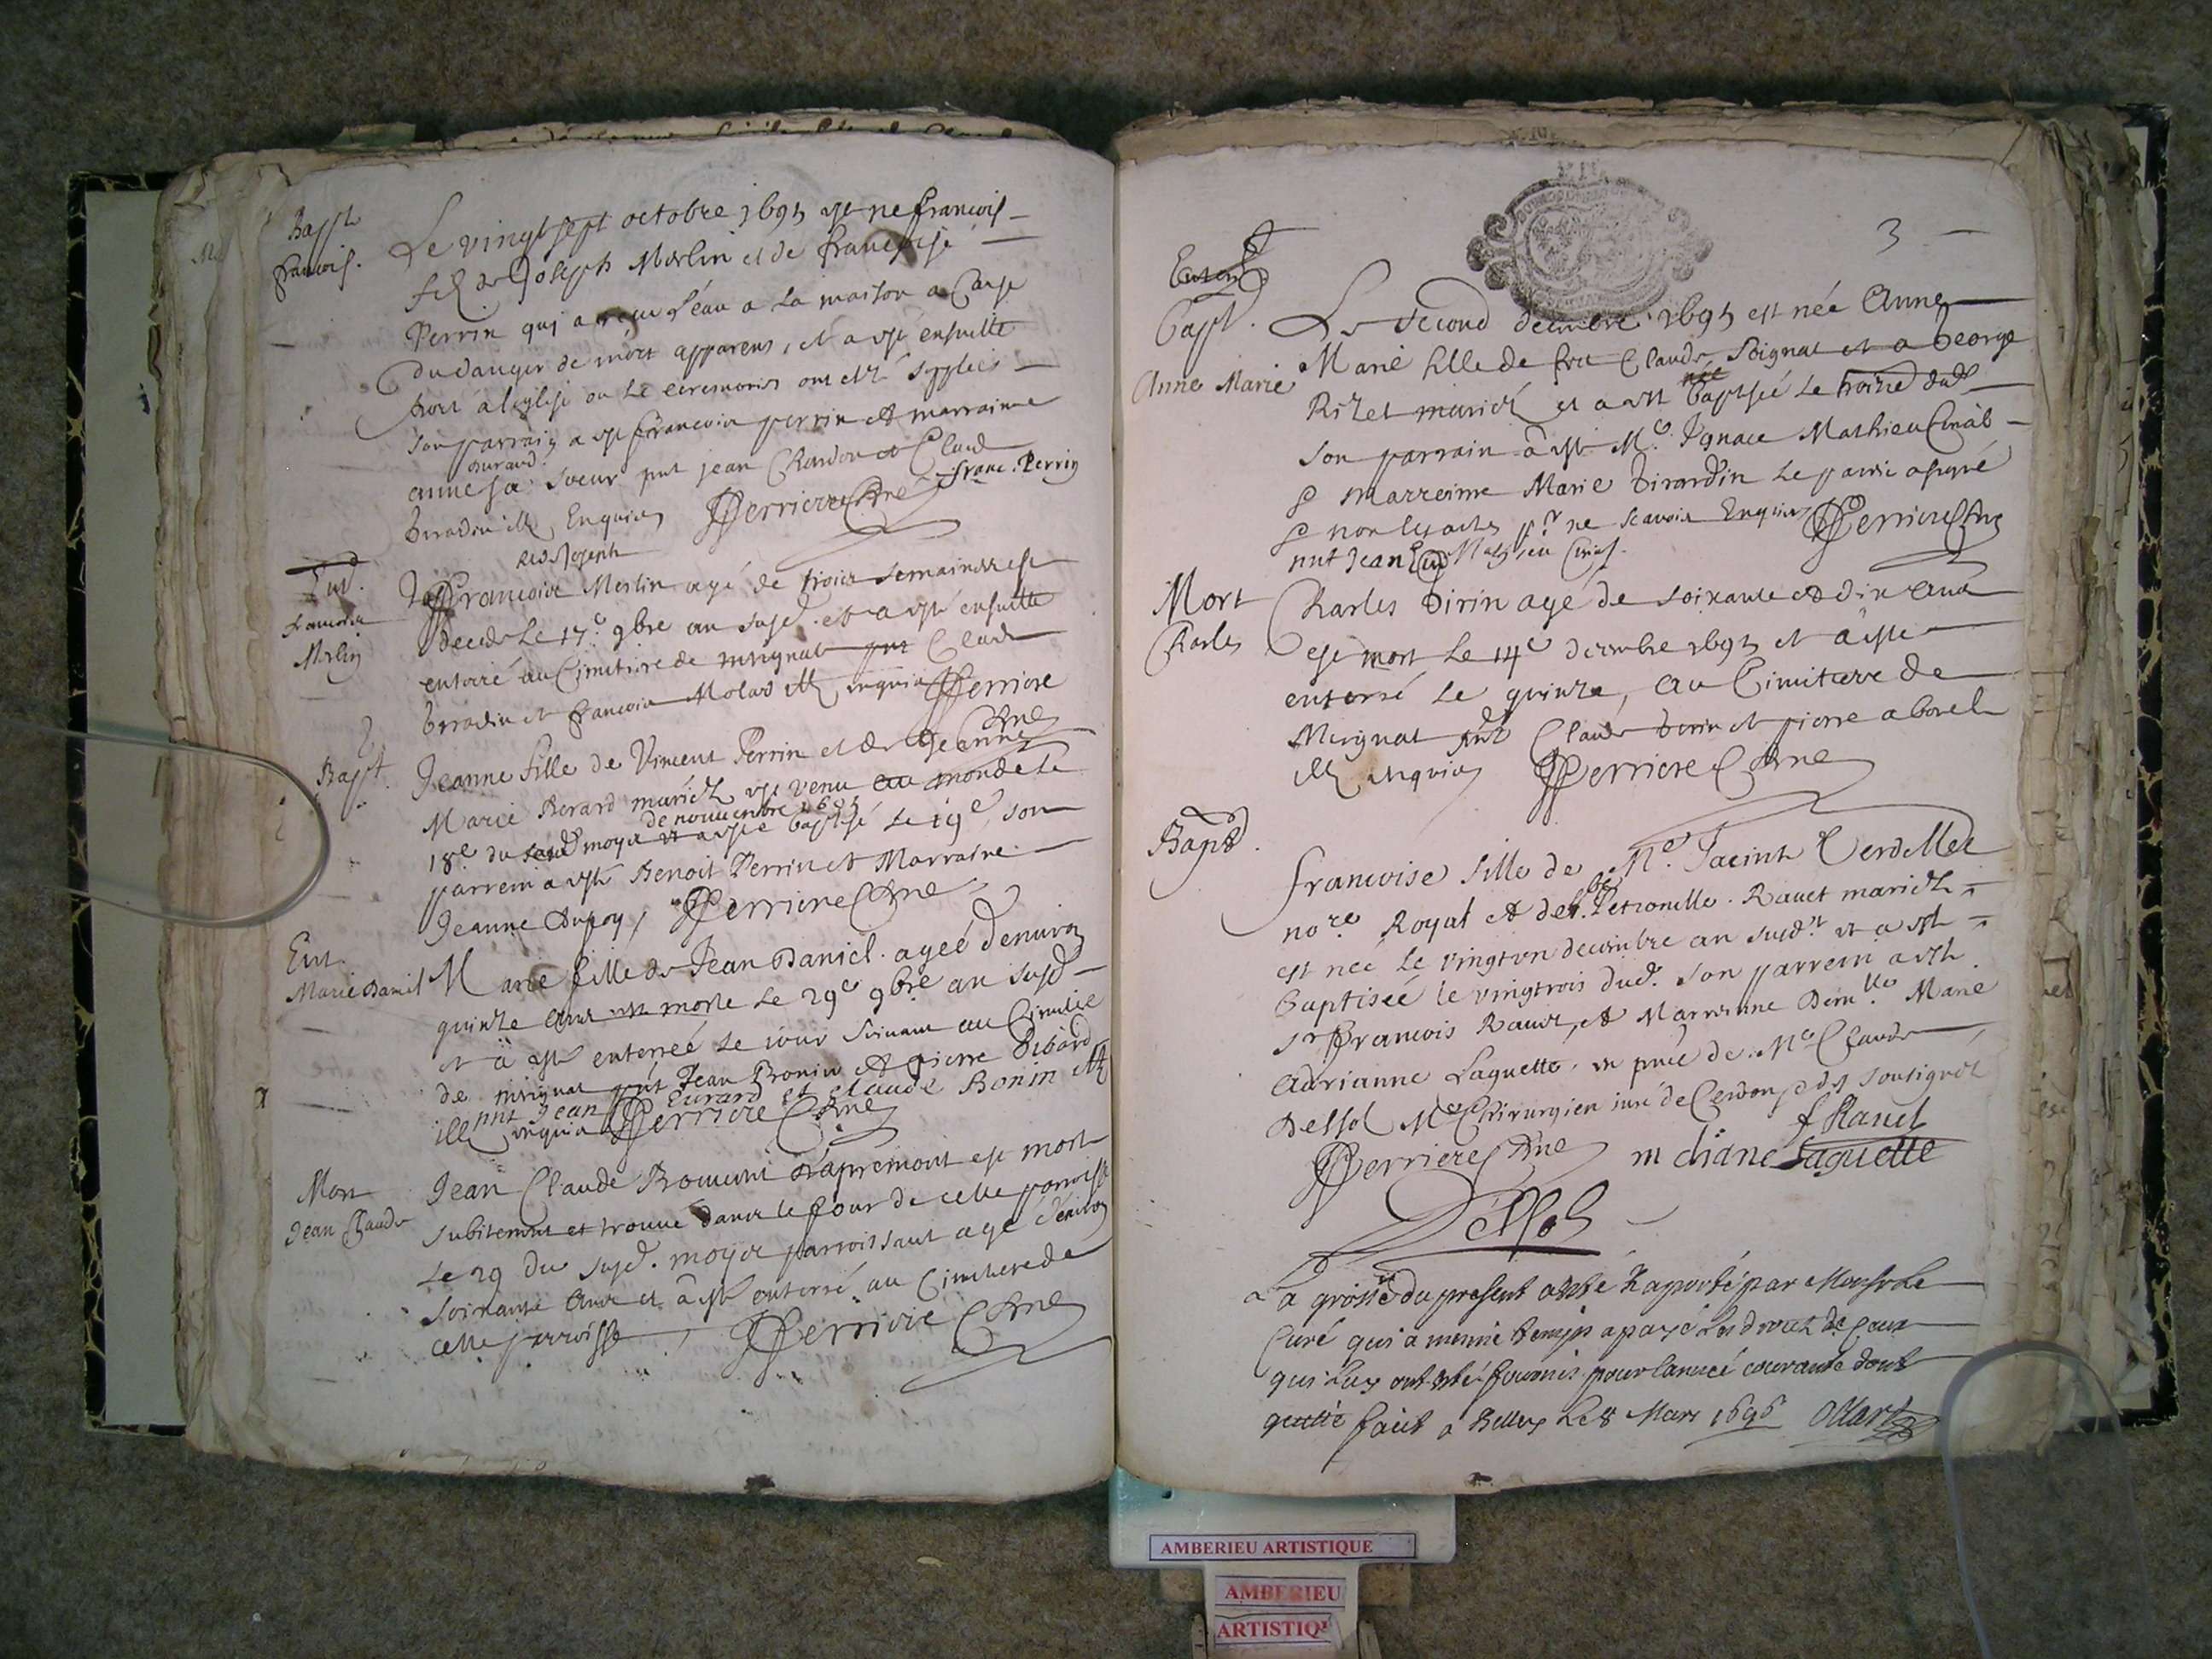 Bapt
francois.
Le vingt sept octobre 1695 est ne francois
filz de Joseph Merlin et de francoise
Perrin qui a reçu l'eau a la maison a cause
du danger de mort apparens, et a esté ensuitte
porté a leglise ou le ceremonies ont esté
son parrain a esté francois perrin et marraine
durand
anne sa soeur pnt jean Chardon et Claud
Girodin ill Enquis Perriere Cure franc. Perrin
Ent.
francois
Merlin
Joseph
francois Merlin agé de trois semaines est
decedé le 17e 9bre an susd. et a esté ensuitte
enterré au Cimitiere de merignat Claude
Girodin et francois Molard ill enquis Perriere
Cure
Bapt.
Jeanne fille de Vincent Perrin et de Jeanne
Marie Berard mariés est venu au monde le
de novembre 1695
18e du moys et a esté baptisé le 19e, son
parrein a esté Benoit Perrin et Marraine
Jeanne Dupoy, Perriere Cure
Ent.
Marie Daniel
Marie fille de Jean Daniel agée denviron
quinze ans est morte le 29e 9bre an susd
et à esté enterreé le jour suivant au Cimitiere
de merignat pnt Jean Bonin et pierre Bibard
ill pnt Jean Eurard et claude Bonin ill
enquis Perriere Cure
Mort
Jean Claude
Jean Claude Roment d'apremont est mort
subitement et trouvé dans le four de cette parroisse
le 29 du susd. moys parroissant agé d'environ
soixante ans et à esté enterré au Cimitiere de
cette parroisse, Perriere Cure
3
Bapt.
Anne Marie
Le second decembre 1695 est née Anne
Marie fille de feu Claude Soignat et a George
née
Rizet mariés et a esté baptisée le troisie dud
son parrain à esté Me. Ignace Mathieu
& marreine Marie Girardin le parrein a signé
& non les aultres pr ne scavoir Enquis Perriere Cure
pnt Jean Mathieu
Mort
Charles
Charles Dirin agé de soixante et dix ans
est mort le 14e decembre 1695 et à esté
enterré le quinze, au Cimitiere de
Merignat pnt Claude Dirin et pierre aborel
ill enquis Perriere Cure
Bapt.
francoise fille de Me. Jacint Verdellet
nore Royal et de Petronille Ravet mariés
est neé le vingt un decembre an susd. et a esté
baptiseé le vingt trois dud. son parrein a esté
sr francois Ravet, et Marreinne Demlle Marie
Adrianne Laguette, en pnce de Me Claude
Dessol Me Chirurgien juré de Cerdon soussignés
f Ravet
Perriere Cure m diane Laguette
Dessol
La grosse du present a esté Raporté par Monsr le
Curé qui a mesme temps a payé les droits de ceux
qui luy ont esté fournis pour lanneé courante dont
quitte faict a Belley Le 8 Mars 1696
AMBERIEU ARTISTIQUE
AMBERIEU
ARTISTIQU